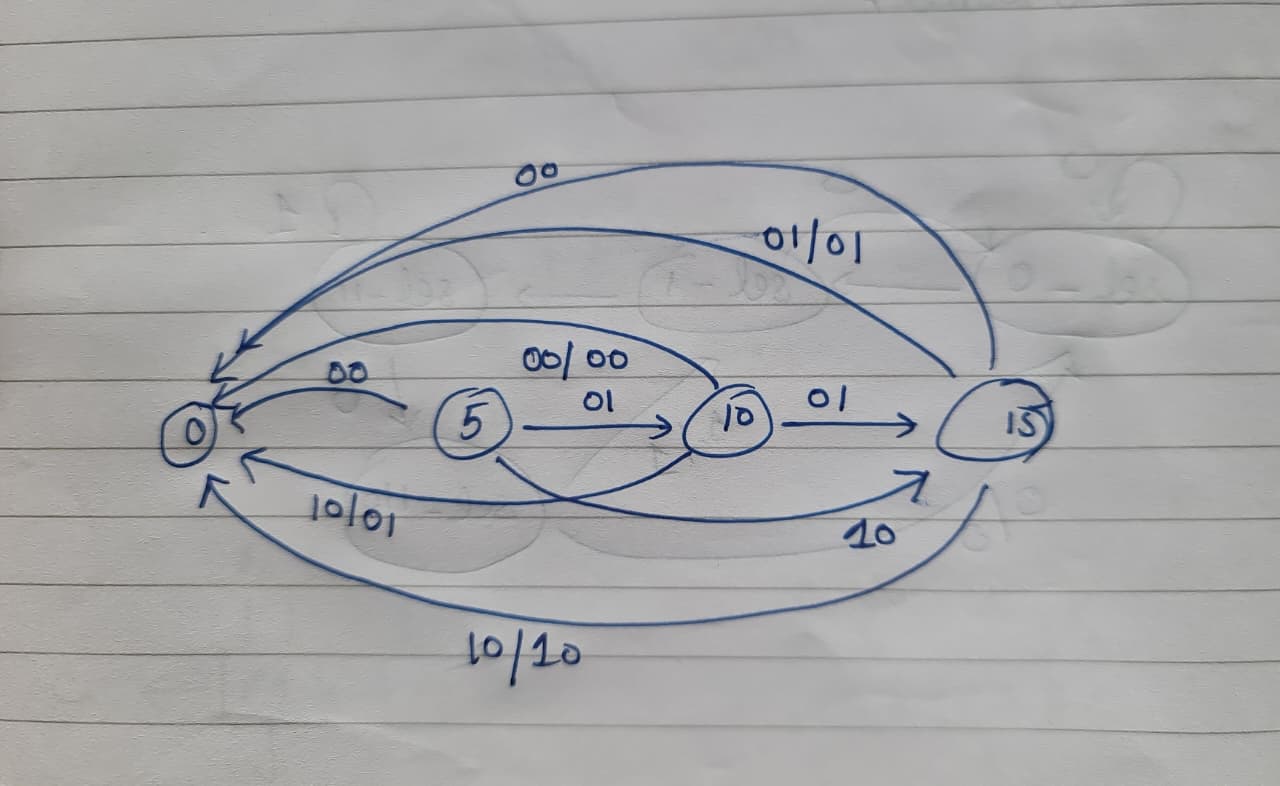 00
01/01
00/00
00
01
01
0
5
10
15
10/01
10
10/10